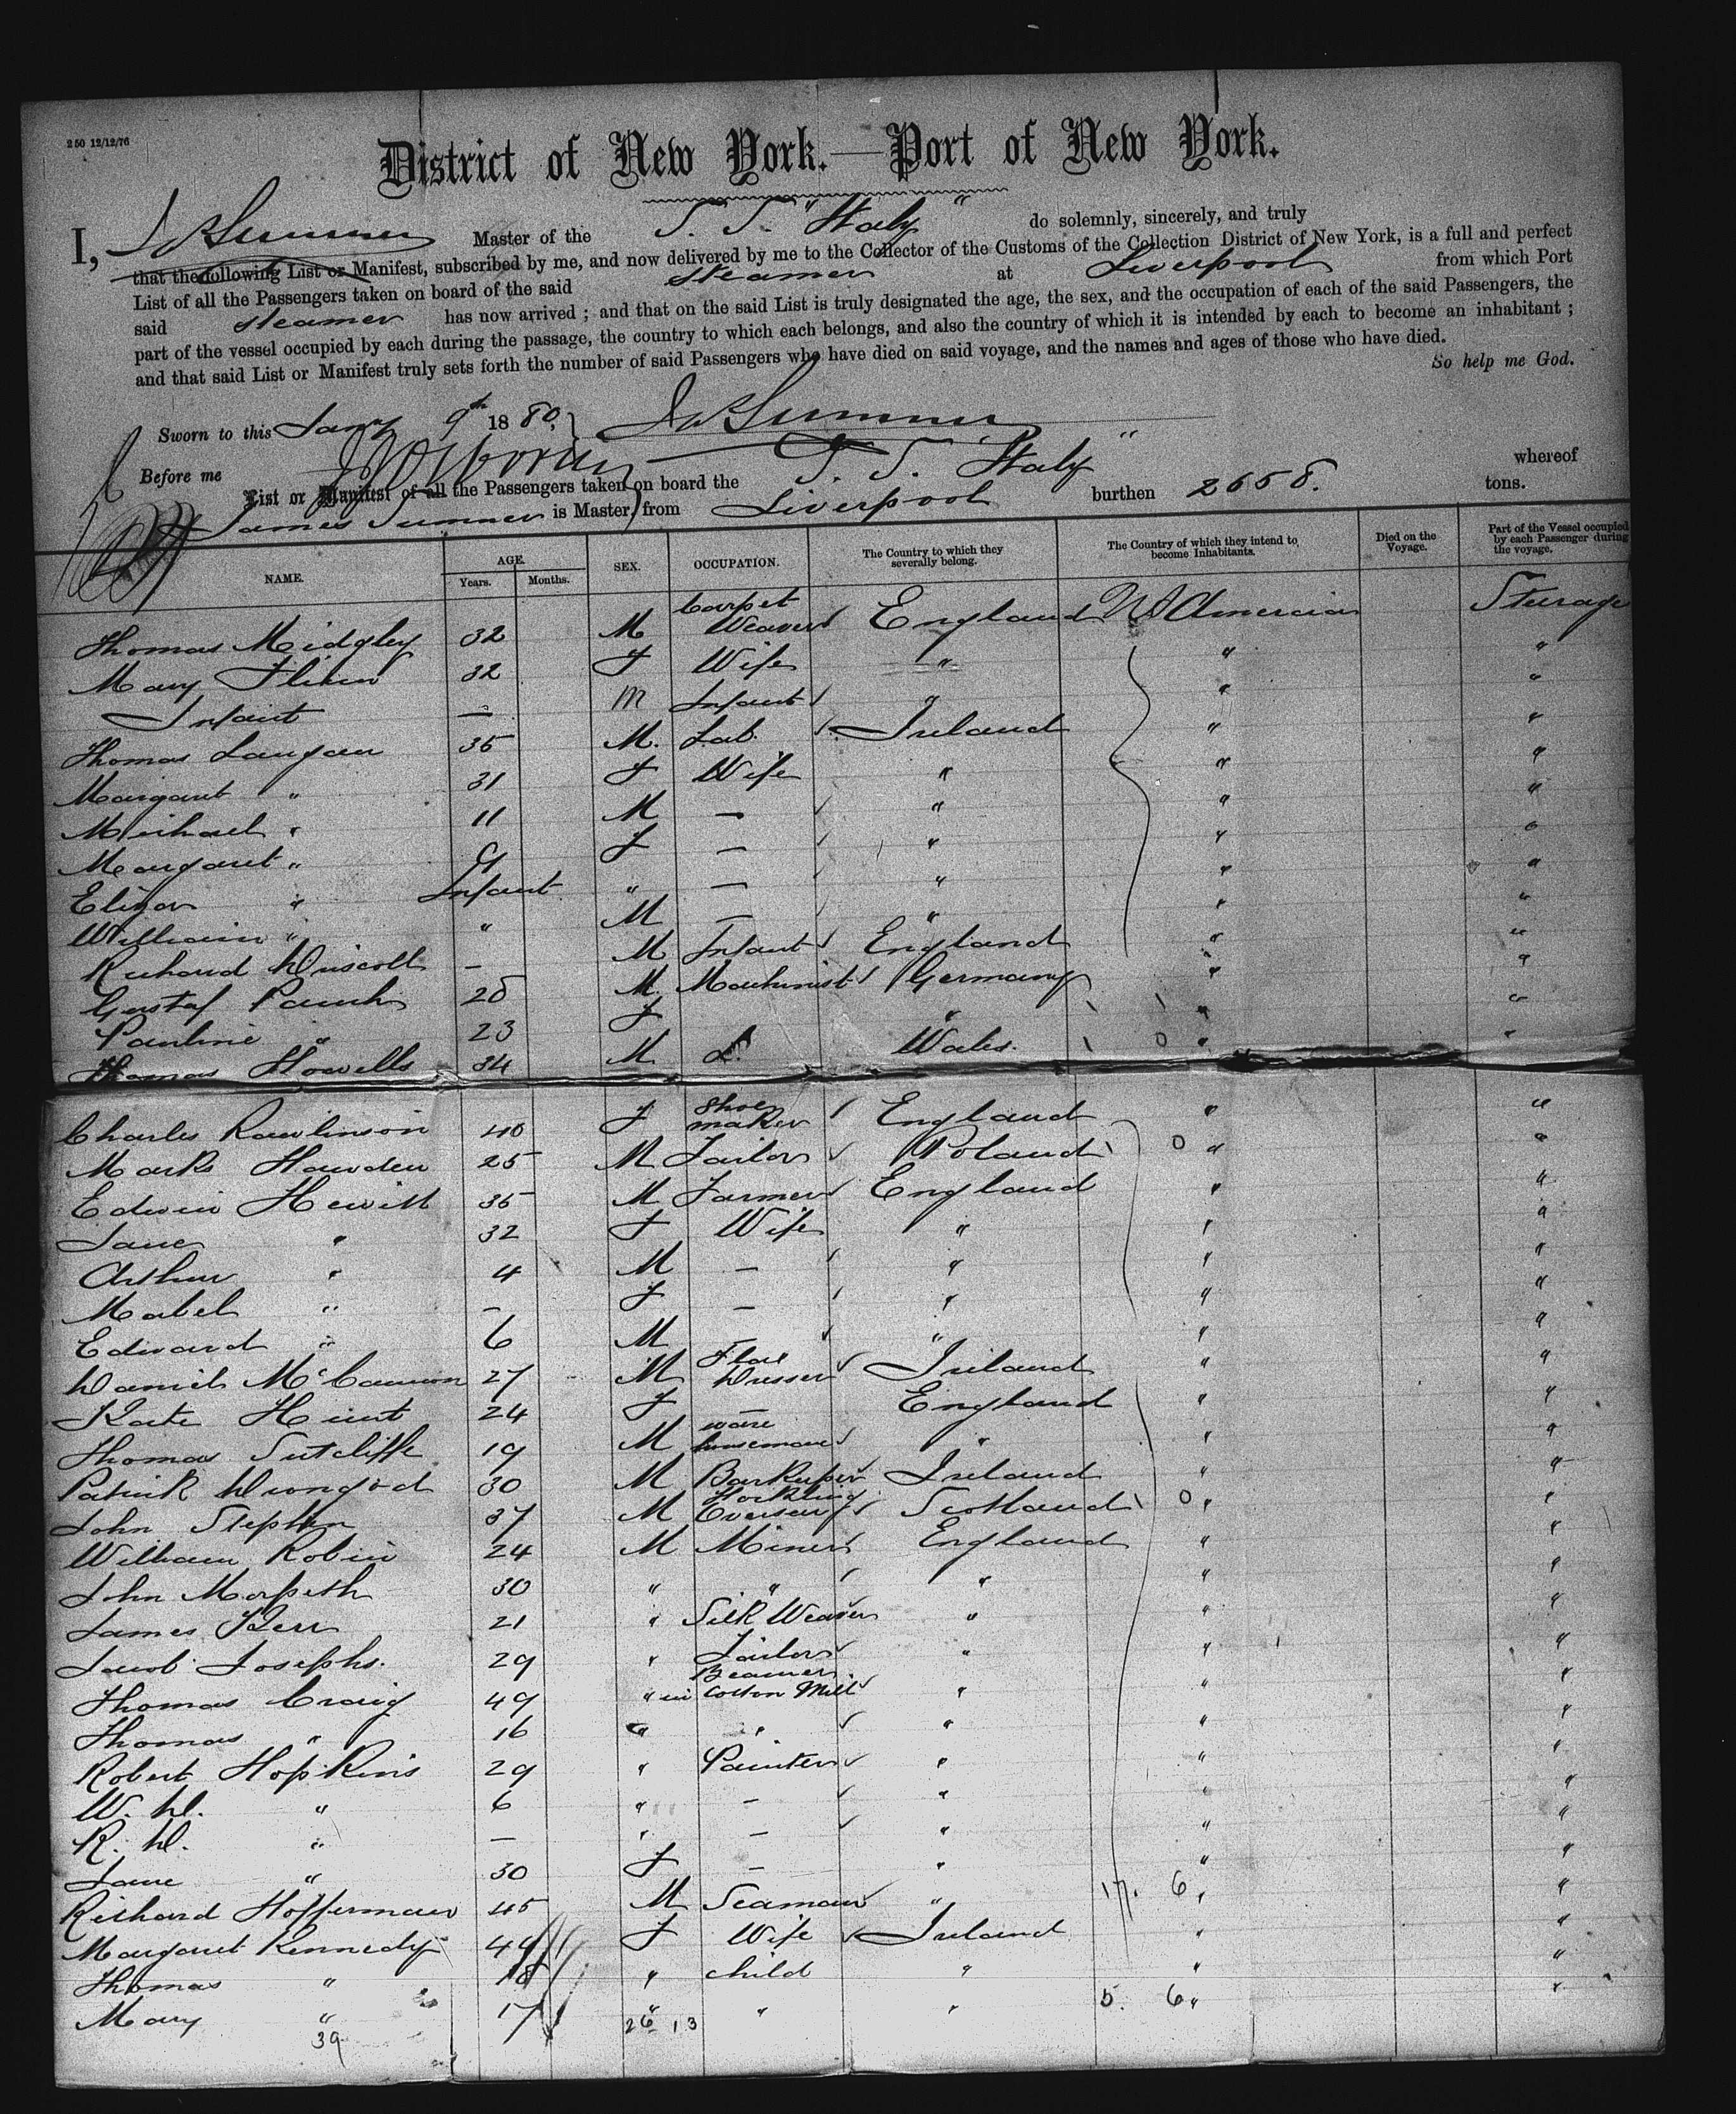 250 12/12/76
District of New York.—Port of New York.
I, Js Sumner Master of the S. S. "Italy" do solemnly, sincerely, and truly
that the following List or Manifest, subscribed by me, and now delivered by me to the Collector of the Customs of the Collection District of New York, is a full and perfect
List of all the Passengers taken on board of the said steamer at Liverpool from which Port
said steamer has now arrived ; and that on the said List is truly designated the age, the sex, and the occupation of each of the said Passengers, the
part of the vessel occupied by each during the passage, the country to which each belongs, and also the country of which it is intended by each to become an inhabitant ;
and that said List or Manifest truly sets forth the number of said Passengers who have died on said voyage, and the names and ages of those who have died.
So help me God.
Sworn to this Jany 9th 1880. Js Sumner
Before me
List or Manifest of all the Passengers taken on board the S. S. "Italy" whereof
James Sumner is Master, from Liverpool burthen 2658. tons.
NAME. AGE. Years. Months. SEX. OCCUPATION. The Country to which they severally belong. The Country of which they intend to become Inhabitants. Died on the Voyage. Part of the Vessel occupied by each Passenger during the voyage.
Thomas Midgley 32 M Carpet Weaver England US America Steerage
Mary 32 F Wife " " "
Infant — M Infant " " "
Thomas Langan 35 M. Lab. Ireland " "
Margaret " 31 F Wife " " "
Michael " 11 M — " " "
Margaret " 9 F — " " "
Eliza " Infant " — " " "
William " " M — " " "
Richard Driscoll — M Infant England " "
Gustaf 28 M. Machinist Germany " "
Pauline " 23 F " " "
Thomas Howells 34 M L. Wales. 0 " "
Charles Rawlinson 40 F Shoe maker England " "
Marks Hawden 25 M Tailor Poland 0 " "
Edwin Hewitt 35 M Farmer England " "
Jane " 32 F Wife " " "
Arthur " 4 M — " " "
Mabel " — F — " " "
Edward " 6 M " " "
Daniel McCannon 27 M Flax Dresser Ireland " "
Kate Hunt 24 F — England " "
Thomas Sutcliffe 19 M ware houseman " " "
Patrick 30 M Barkeeper Ireland " "
John Stephen 37 M Hackling Overseer Scotland 0 " "
William Robin 24 M Miner England " "
John Morpeth 30 " " " " "
James Kerr 21 " Silk Weaver " " "
Jacob Josephs. 29 " Tailor " " "
Thomas Craig 49 " Beamer in Cotton Mill " " "
Thomas " 16 " " " " "
Robert Hopkins 29 " Painter " " "
W. H. " 6 " — " " "
R. H. " — " — " " "
Jane " 30 F — " " "
Richard Hofferman 45 M Seaman " 17. 6 " "
Margaret Kennedy 44 F Wife Ireland " "
Thomas " 18 " child " " "
Mary " 17 " " " 5. 6 " "
39 26 13